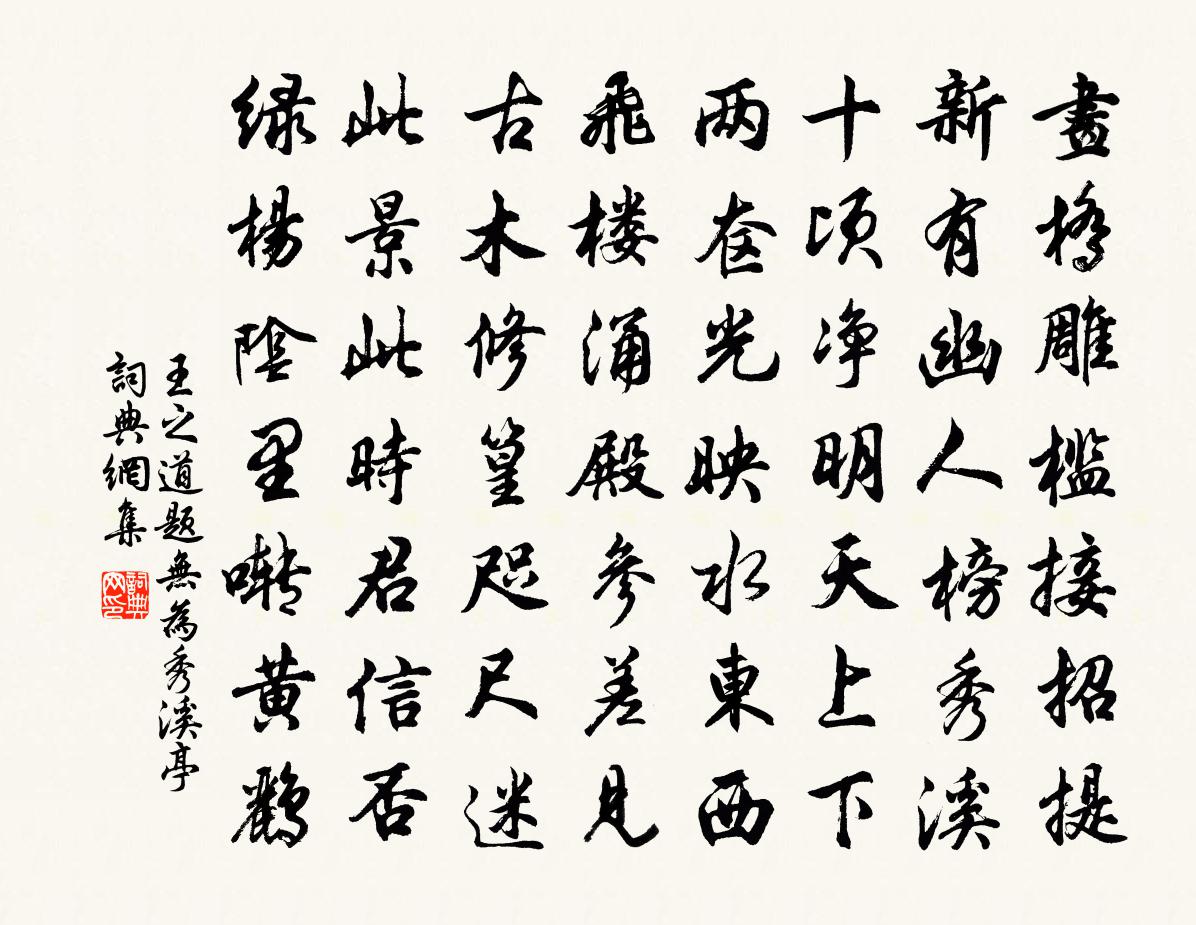 畫橋雕檻接招提
新有幽人榜秀溪
十頃净明天上下
两奁光映水東西
飛楼涌殿參差見
古木修篁咫尺迷
此景此時君信否
绿楊陰里囀黄鸝
王之道题無為秀溪亭
詞典網集
詞典网印